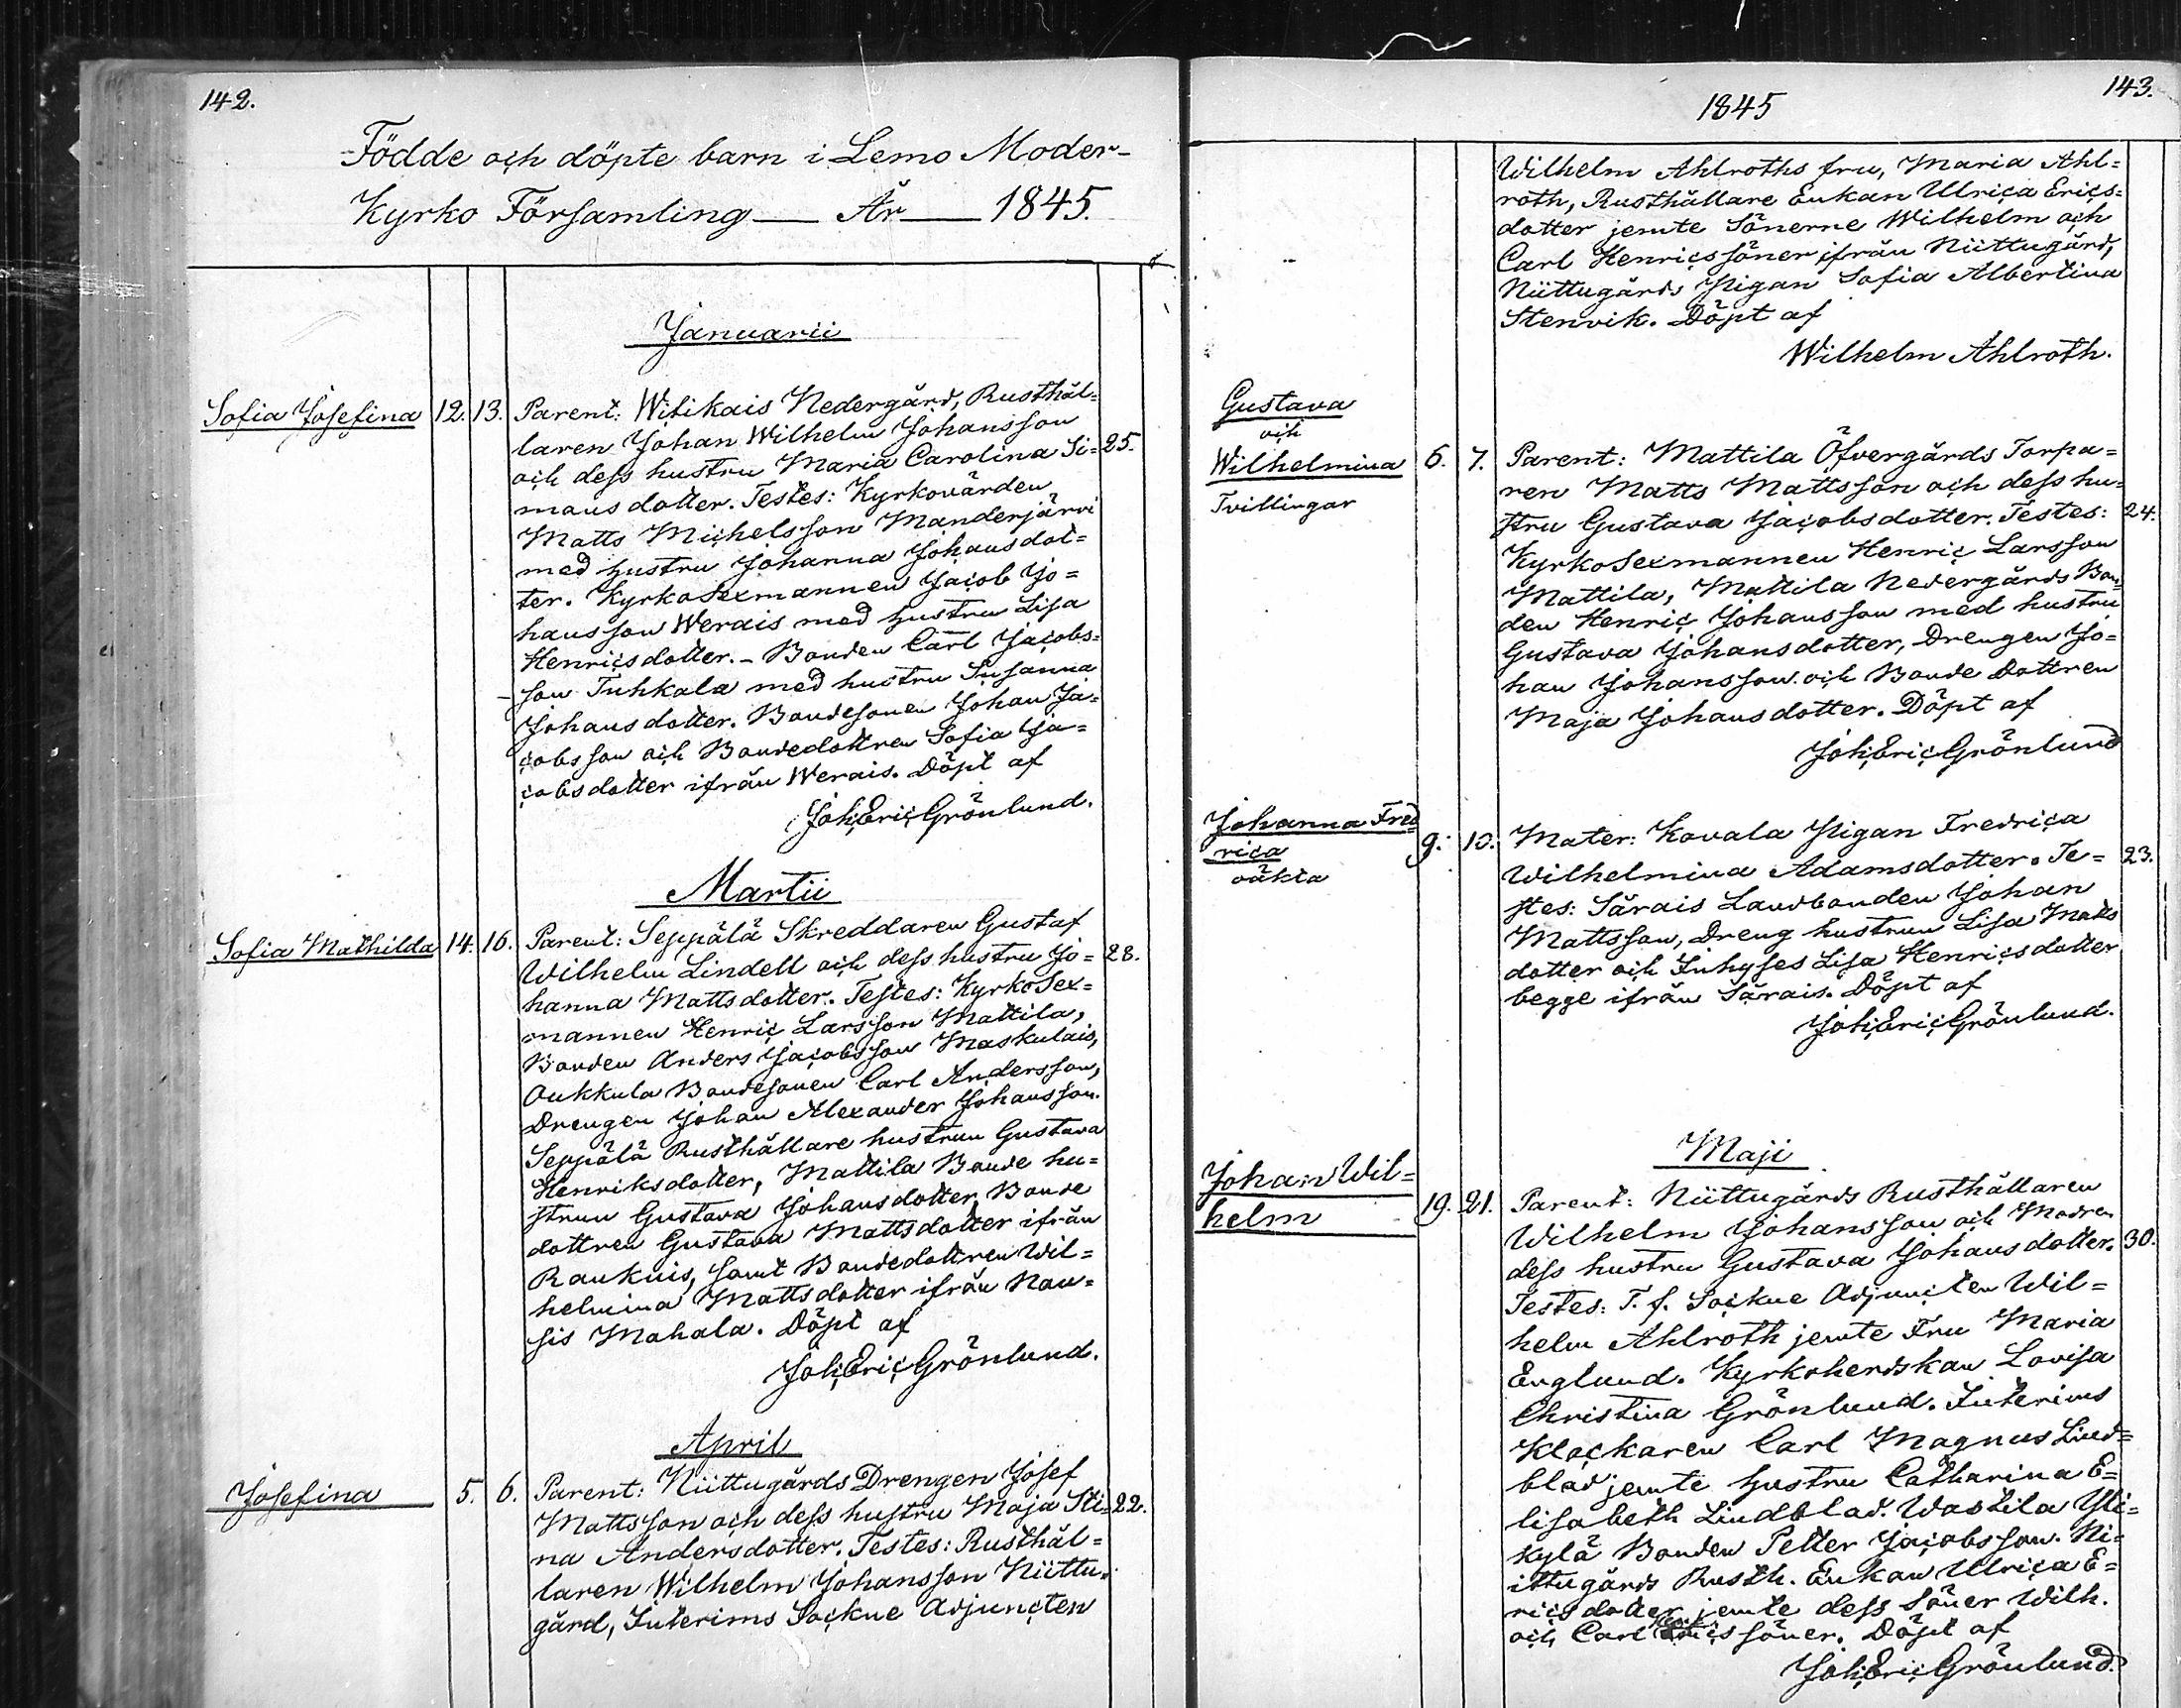 142.
Födde och döpte barn i Lemo Moder-
Kyrko Församling — År — 1845.
Januarii
Sofia Josefina 12. 13. Parent: Witikais Nedergård, Rusthål=
laren Johan Wilhelm Johansson
och dess hustru Maria Carolina Si= 25.
mansdotter. Testes: Kyrkovärden
Matts Michelsson Manderjärvi
med hustru Johanna Johansdot=
ter. Kyrko Sexmannen Jacob Jo=
hansson Werais med hustru Lisa
Henricsdotter. - Bonden Carl Jacobs=
son Tuhkala med hustru Susanna
Johansdotter. Bondesonen Johan Ja=
cobsson och Bondedottren Sofia Ja=
cobsdotter ifrån Werais. Döpt af
Joh. Eric Grönlund.
Martii
Sofia Mathilda 14. 16. Parent: Seppälä Skreddaren Gustaf
Wilhelm Lindell och dess hustru Jo= 28.
hanna Mattsdotter. Testes: Kyrko Sex=
mannen Henric Larsson Mattila,
Bonden Anders Jacobsson Maskulais,
Oukkula Bondesonen Carl Andersson,
Drengen Johan Alexander Johansson.
Seppälä Rusthållare hustrun Gustava
Henriksdotter, Mattila Bonde hu=
strun Gustava Johansdotter, Bonde
dottren Gustava Mattsdotter ifrån
Raukuis, samt Bondedottren Wil=
helmina Mattsdotter ifrån Nou=
sis Mahala. Döpt af
Joh. Eric Grönlund.
April
Josefina 5. 6. Parent: Niittugårds Drengen Josef
Mattsson och dess hustru Maja Sti= 22.
na Andersdotter. Testes: Rusthål=
laren Wilhelm Johansson Niittu=
gård, Interims Sockne Adjuncten
1845
143.
Wilhelm Ahlroths fru, Maria Ahl=
roth, Rusthållare Enkan Ulrica Erics=
dotter jemte Sönerne Wilhelm och
Carl Henricssöner ifrån Niittugård,
Niittugårds Pigan Sofia Albertina
Stenvik. Döpt af
Wilhelm Ahlroth.
Gustava
och
Wilhelmina 6. 7. Parent: Mattila Öfvergårds Torpa=
Tvillingar
ren Matts Mattsson och dess hu=
stru Gustava Jacobsdotter. Testes: 24.
Kyrko Sexmannen Henric Larsson
Mattila, Mattila Nedergårds Bon=
den Henric Johansson med hustru
Gustava Johansdotter, Drengen Jo=
han Johansson och Bonde Dottren
Maja Johansdotter. Döpt af
Joh. Eric Grönlund
Johanna Fred
rica
oäkta
9. 10. Mater: Kovala Pigan Fredrica
Wilhelmina Adamsdotter. Te= 23.
stes: Särais Landbonden Johan
Mattsson, Dreng hustrun Lisa Matts
dotter och Inhyses Lisa Henricsdotter
begge ifrån Särais. Döpt af
Joh. Eric Grönlund.
Maji
Johan Wil=
helm
19. 21. Parent: Niittugårds Rusthållaren
Wilhelm Johansson och Modren
dess hustru Gustava Johansdotter. 30.
Testes: T. f. Sockne Adjuncten Wil=
helm Ahlroth jemte Fru Maria
Englund. Kyrkoherdskan Lovisa
Christina Grönlund. Interims
Klockaren Carl Magnus Lind=
blad jemte hustru Catharina E=
lisabeth Lindblad. Wastila Yli=
kylä Bonden Petter Jacobsson. Ni=
ittugårds Rusth. Enkan Ulrica E=
ricsdotter jemte dess Söner Wilh.
och Carl söner. Döpt af
Joh. Eric Grönlund.